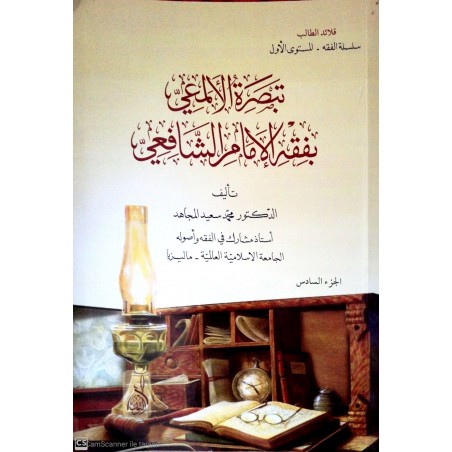 قلائد الطالب
سلسلة الفقه - المستوى الأول
تبصرة الألمعي
بفقه الإمام الشافعي
تأليف
الدكتور محمد سعيد المجاهد
أستاذ مشارك في الفقه وأصوله
الجامعة الإسلامية العالمية - ماليزيا
الجزء السادس
CS CamScanner ile